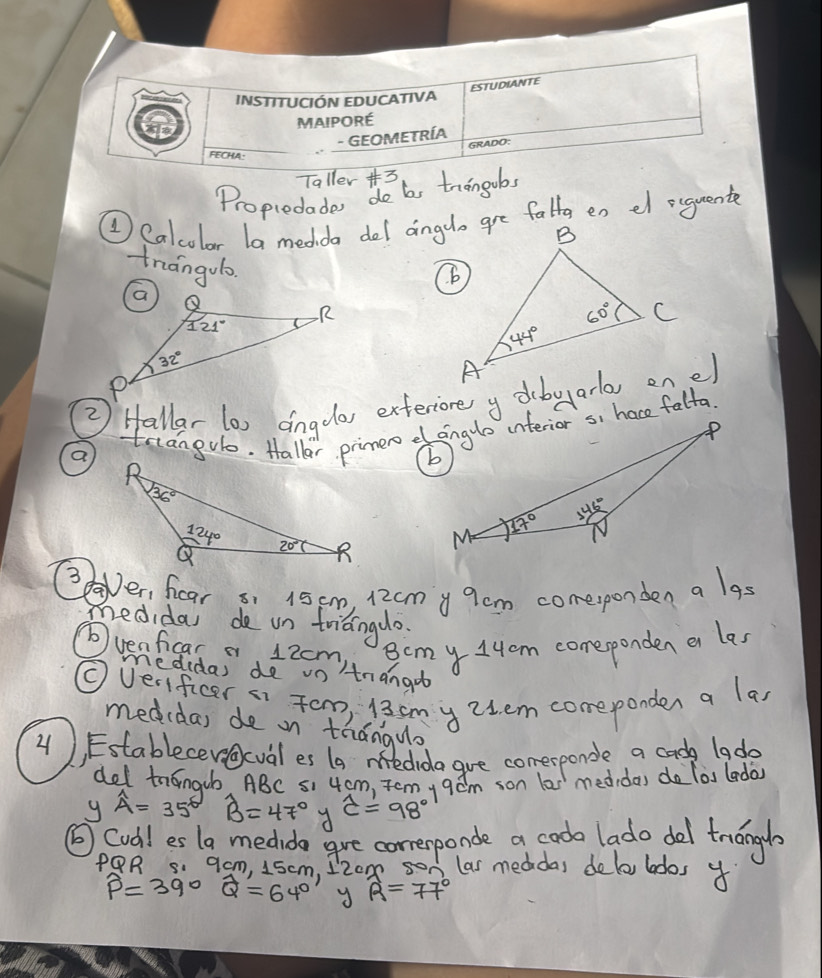 INSTITUCIÓN EDUCATIVA
MAIPORÉ
- GEOMETRÍA
ESTUDIANTE
FECHA:
GRADO:
Taller #3
Propiedades de los triángulos
① Calcular la medida del ángulo que falta en el siguiente
triángulo.
ⓐ
Q
121°
R
32°
P
ⓑ
B
60°
C
44°
A
② Hallar los ángulos exteriores y dibujarlos en el
triángulo. Hallar primero el ángulo interior si hace falta.
ⓐ
R
36°
124°
Q
20°
R
ⓑ
P
M
17°
N
③ ⓐ Verificar si 15cm, 12cm y 9cm corresponden a las
medidas de un triángulo.
ⓑ Verificar si 12cm, 8cm y 14cm corresponden a las
medidas de un triángulo
ⓒ Verificar si 7cm, 13cm y 21cm correponden a las
medidas de un triángulo
4), Establecer ⓐ cuál es la medida que corresponde a cada lado
del triángulo ABC si 4cm, 7cm y 9cm son las medidas de los lados
y Â = 35° B̂ = 47° y Ĉ = 98°
ⓑ Cuál es la medida que corresponde a cada lado del triángulo
PQR si 9cm, 15cm, 12cm son las medidas de los lados y
P̂ = 39° Q̂ = 64° y R̂ = 77°